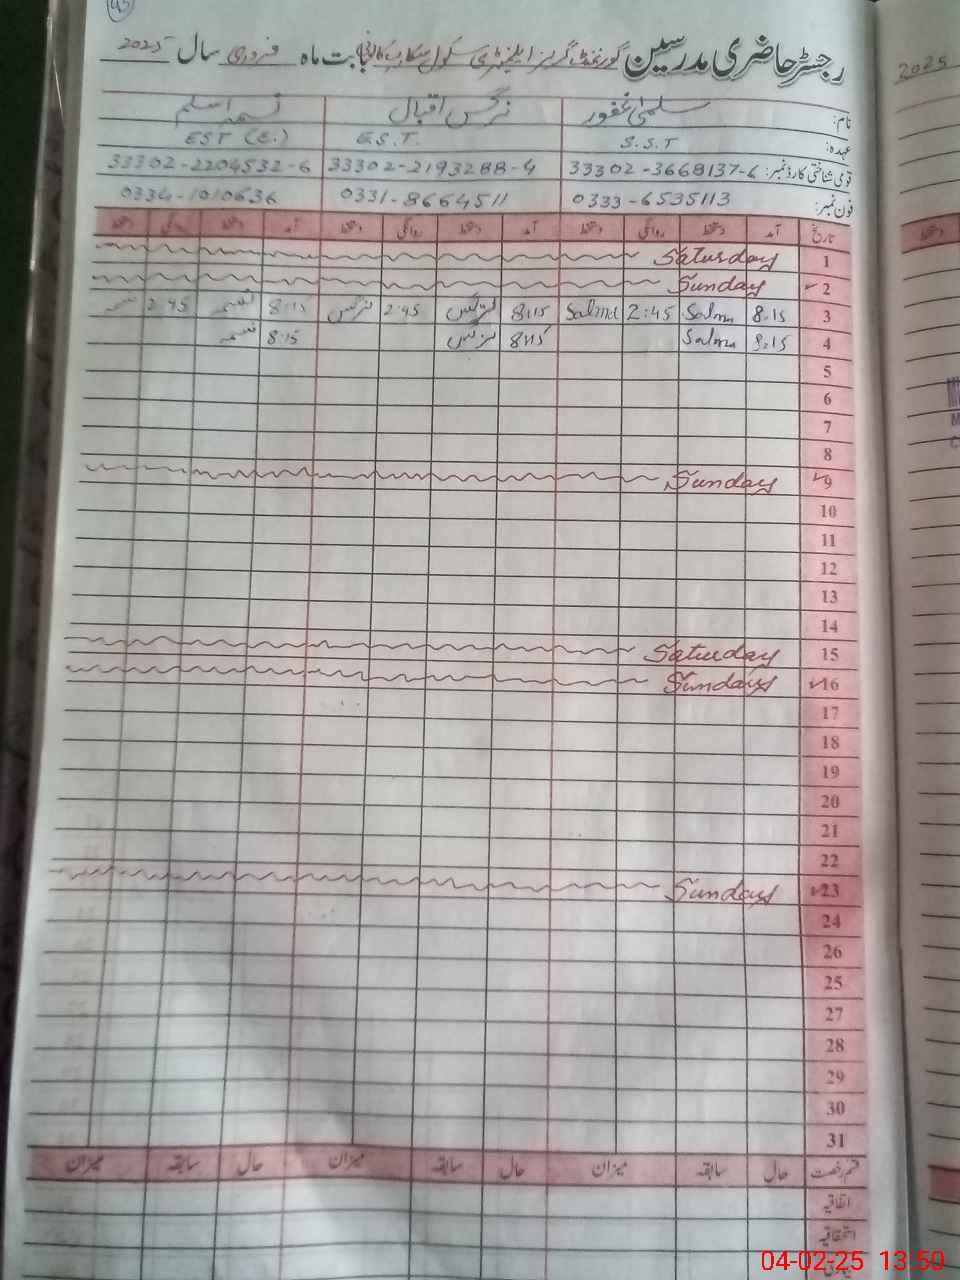 43
رجسٹر حاضری مدرسین گورنمنٹ گرلز ایلیمنٹری سکول بابت ماہ فروری سال 2025
نام: سلمیٰ غفور نرگس اقبال نسیمہ اسلم
عہدہ: S.S.T E.S.T. EST (E.)
قومی شناختی کارڈ نمبر: 33302-3668137-6 33302-2193288-4 33302-2204532-6
فون نمبر: 0333-6535113 0331-8664511 0334-1010636
تاریخ آمد دستخط روانگی دستخط آمد دستخط روانگی دستخط آمد دستخط روانگی دستخط
1 Saturday
2 Sunday
3 8.15 Salma 2:45 Salma 8:15 نرگس 2:45 نرگس 8:15 نسیمہ 2:45 نسیمہ
4 8.15 Salma 8:15 نرگس 8:15 نسیمہ
5
6
7
8
9 Sunday
10
11
12
13
14
15 Saturday
16 Sunday
17
18
19
20
21
22
23 Sunday
24
26
25
27
28
29
30
31
قسم رخصت حال سابقہ میزان حال سابقہ میزان حال سابقہ میزان
اتفاقیہ
استحقاقیہ
2025
دستخط
04-02-25 13:50